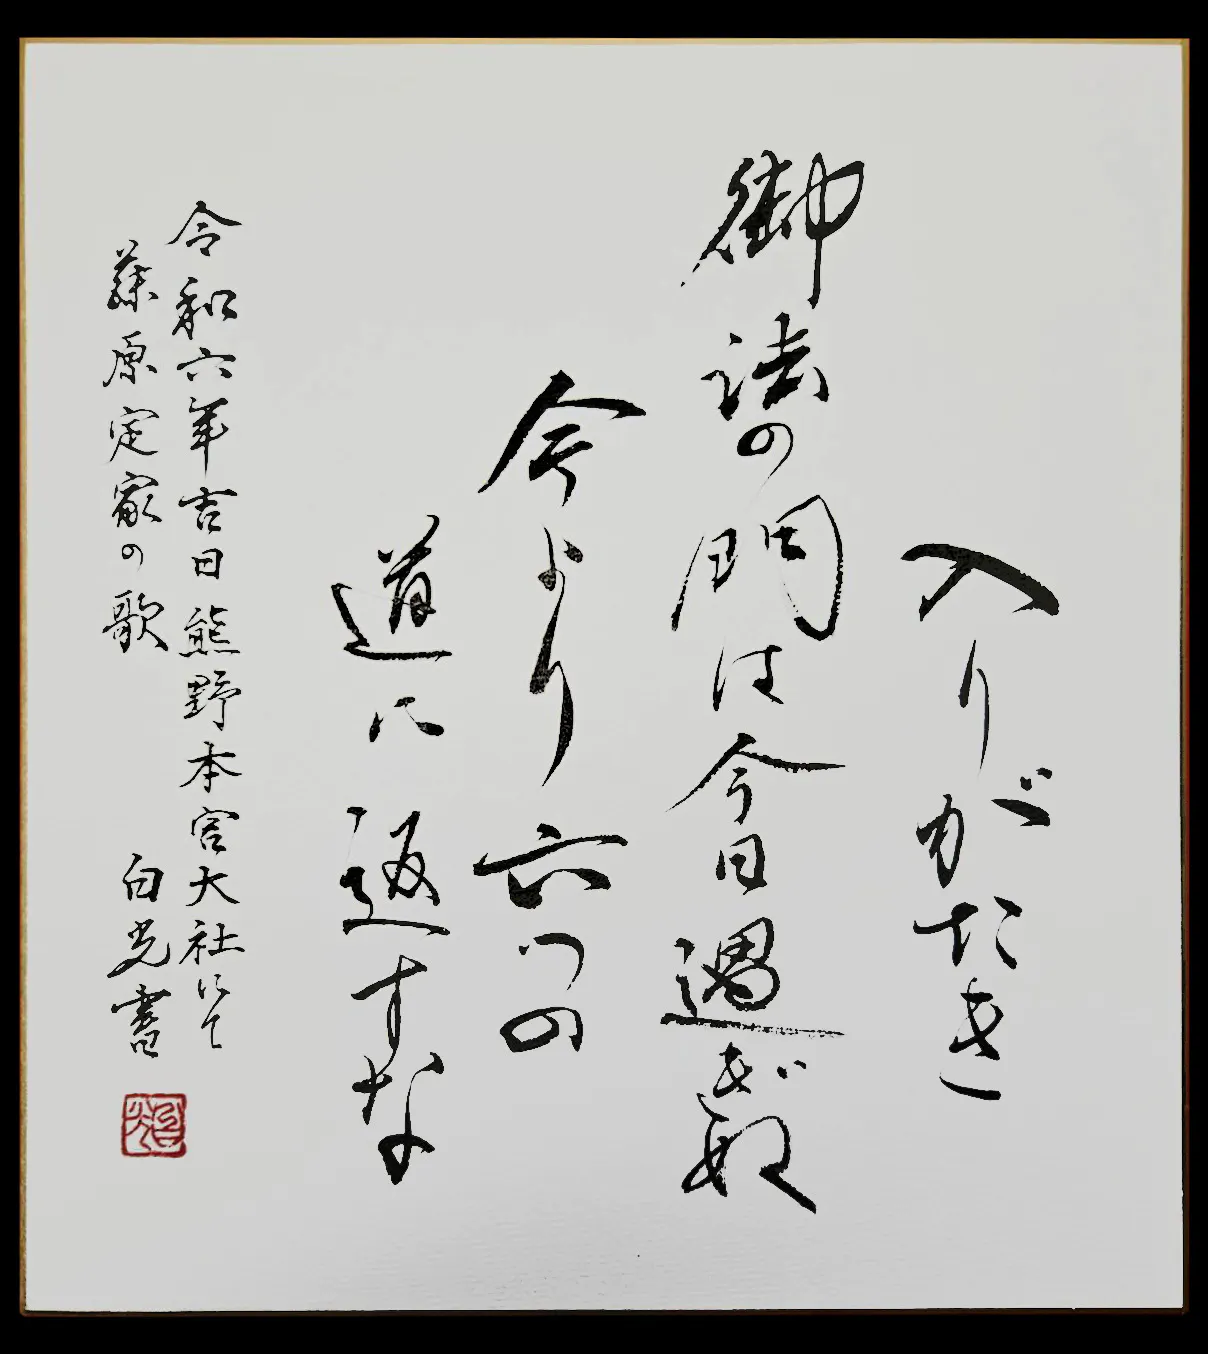 入りがたき
御法の門は今日過ぎぬ
今より六つの
道に返すな
令和六年吉日熊野本宮大社にて
藤原定家の歌
白光書